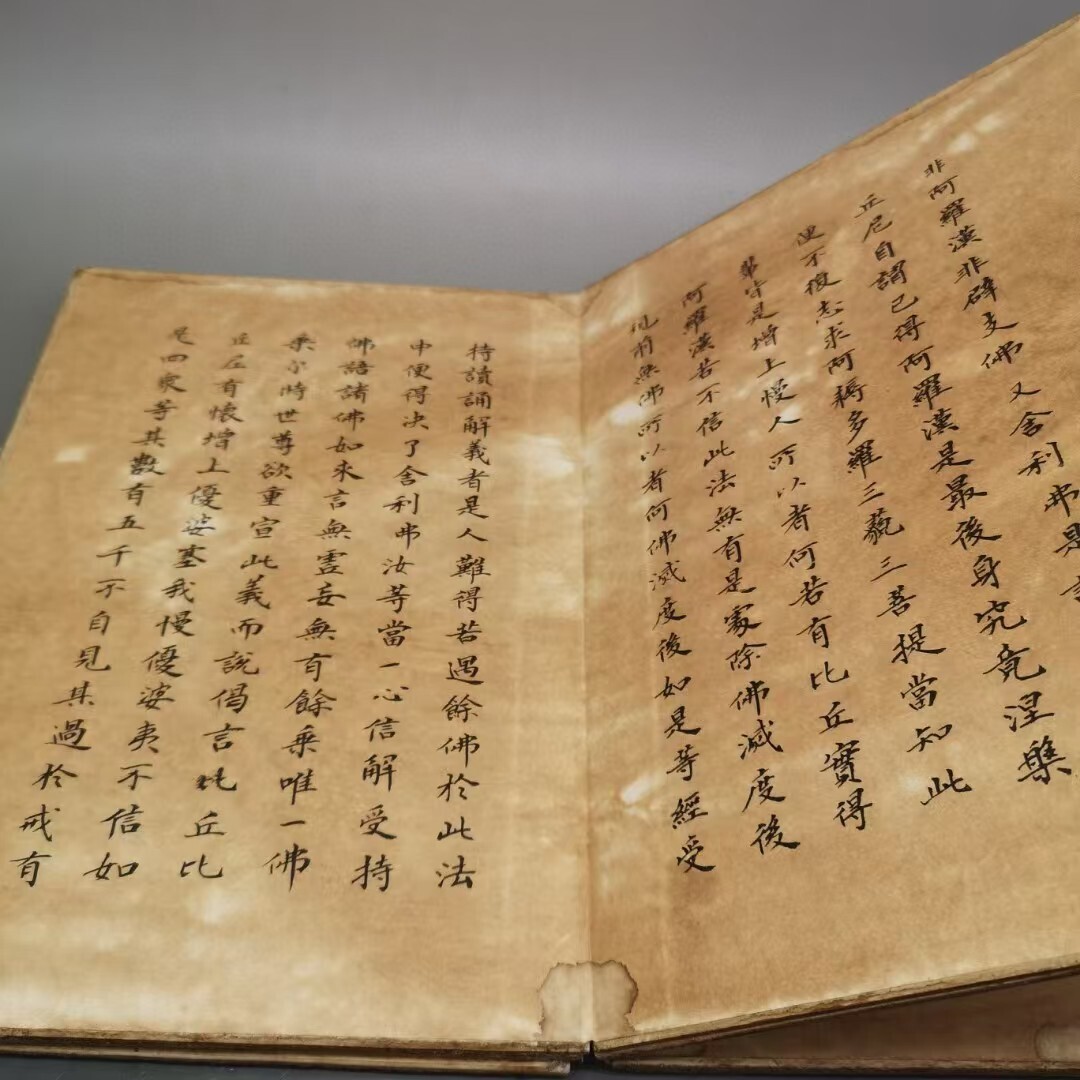 又舍利弗是
非阿羅漢非辟支佛
丘尼自謂已得阿羅漢是最後身究竟涅槃
便不復志求阿耨多羅三藐三菩提當知此
輩皆是增上慢人所以者何若有比丘實得
阿羅漢若不信此法無有是處除佛滅度後
現前無佛所以者何佛滅度後如是等經受
持讀誦解義者是人難得若遇餘佛於此法
中便得决了舍利弗汝等當一心信解受持
佛語諸佛如來言無虛妄無有餘乘唯一佛
乘尔時世尊欲重宣此義而說偈言比丘比
丘尼有懷增上優婆塞我慢優婆夷不信如
是四衆等其數有五千不自見其過於戒有